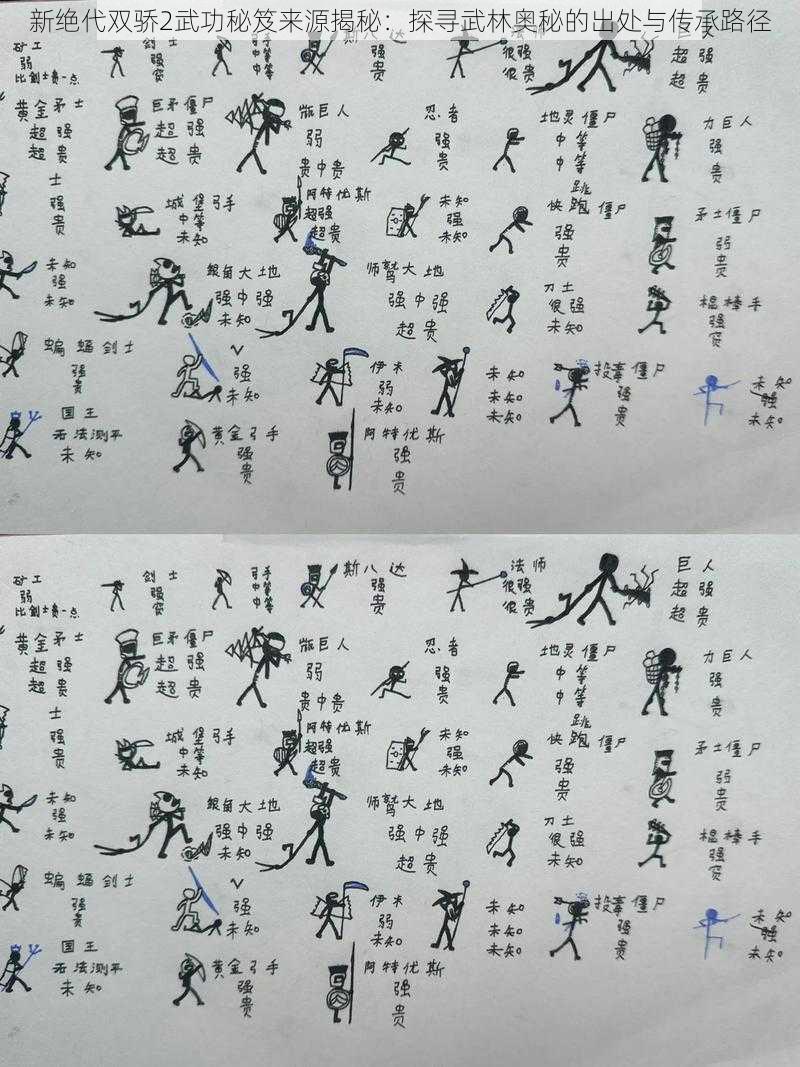 新绝代双骄2武功秘笈来源揭秘：探寻武林奥秘的出处与传承路径
矿工
弱
比剑士贵一点
剑士
强
弓手
中等
中等
斯八达
强
贵
法师
很强
很贵
巨人
超强
超贵
黄金矛士
超强
超贵
巨矛僵尸
超强
超贵
巨人
弱
贵中贵
忍者
强
贵
地灵僵尸
中等
中等
力巨人
强
贵
士
强
贵
城堡弓手
中等
未知
阿特优斯
超强
超贵
未知
强
未知
跳
快跑僵尸
强
贵
矛士僵尸
弱
贵
未知
强
未知
银角大地
强中强
未知
师鹫大地
强中强
超贵
刀士
很强
未知
棍棒手
强
蝙蝠剑士
强
贵
V
强
未知
伊木
弱
未知
未知
未知
未知
投毒僵尸
强
贵
未知
强
未知
国王
无法测平
未知
黄金弓手
强
贵
阿特优斯
强
贵
矿工
弱
比剑士贵一点
剑士
强
弓手
中等
中等
斯八达
强
贵
法师
很强
很贵
巨人
超强
超贵
黄金矛士
超强
超贵
巨矛僵尸
超强
超贵
巨人
弱
贵中贵
忍者
强
贵
地灵僵尸
中等
中等
力巨人
强
贵
士
强
贵
城堡弓手
中等
未知
阿特优斯
超强
超贵
未知
强
未知
跳
快跑僵尸
强
贵
矛士僵尸
弱
贵
未知
强
未知
银角大地
强中强
未知
师鹫大地
强中强
超贵
刀士
很强
未知
棍棒手
强
蝙蝠剑士
强
贵
V
强
未知
伊木
弱
未知
未知
未知
未知
投毒僵尸
强
贵
未知
强
未知
国王
无法测平
未知
黄金弓手
强
贵
阿特优斯
强
贵